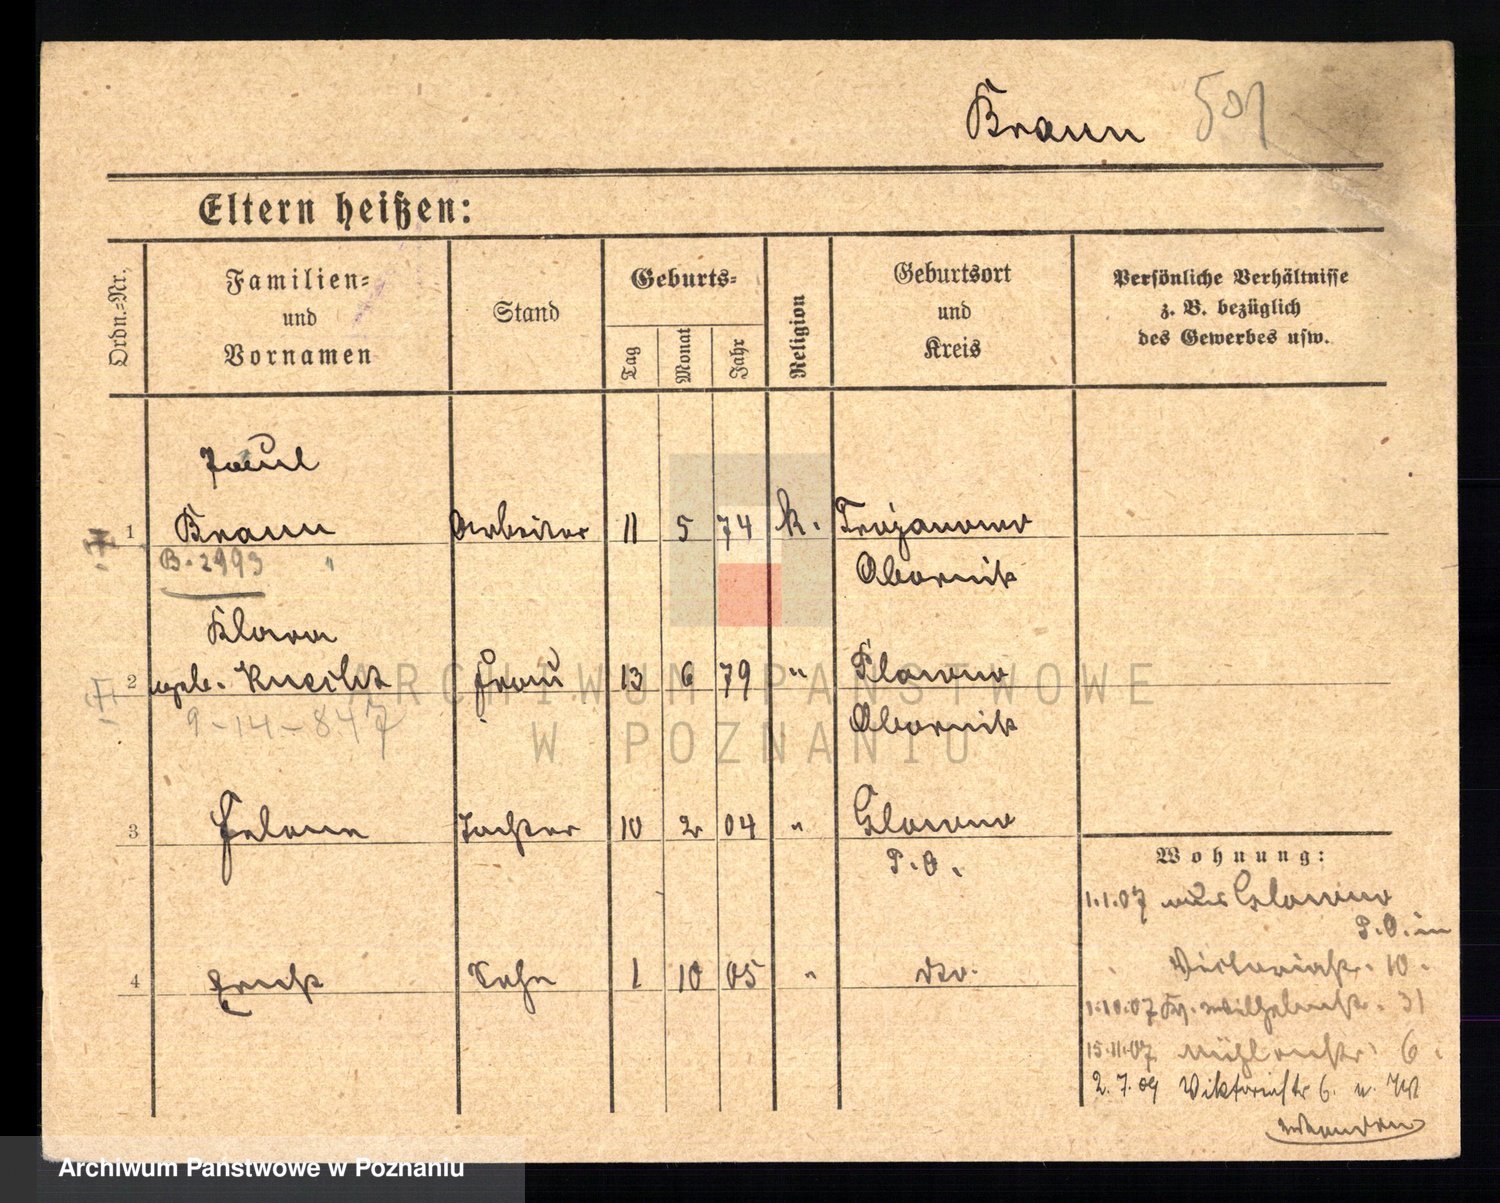 Braun 501
Eltern heißen:
Ordn.=Nr.
Familien=
und
Vornamen
Stand
Geburts=
Tag
Monat
Jahr
Religion
Geburtsort
und
Kreis
Persönliche Verhältnisse
z. B. bezüglich
des Gewerbes usw.
Paul
1 Braun Arbeiter 11 5 74 k. Trojanowo
B. 2993 Obornik
Klara
2 geb. Knecht Frau 13 6 79 " Slawno
9-14-847 Obornik
3 Helene Tochter 10 2 04 " Glowno
P. O.
4 Erich Sohn 1 10 05 " dto.
Wohnung:
1.1.07 aus Glowno
P. O. in
Victoriastr. 10.
1.10.07 Kg. Wilhelmstr. 31
15.11.07 Mühlenstr. 6.
2.7.09 Viktoriastr 6. n.
ARCHIWUM PAŃSTWOWE
W POZNANIU
Archiwum Państwowe w Poznaniu